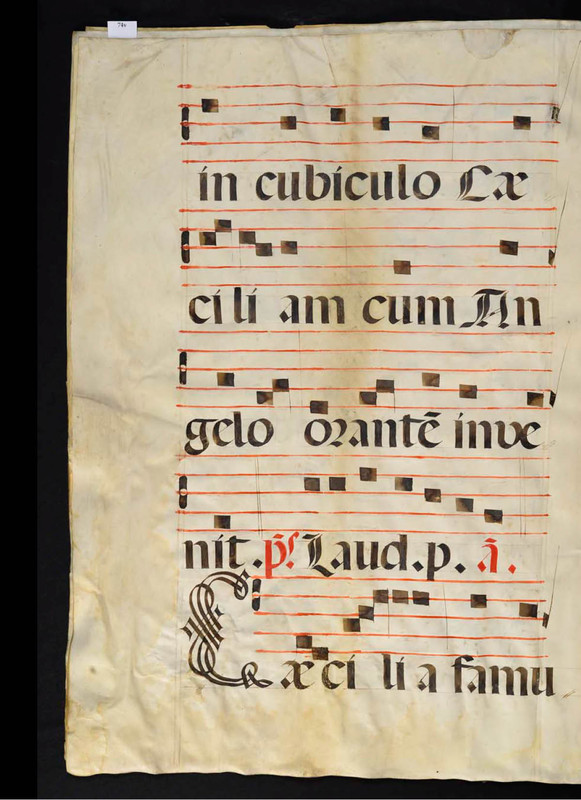 74v
in cubiculo Cæ
cili am cum An
gelo orantē inve
nit. p̄s̄ Laud. p. ā.
Cæci li a famu